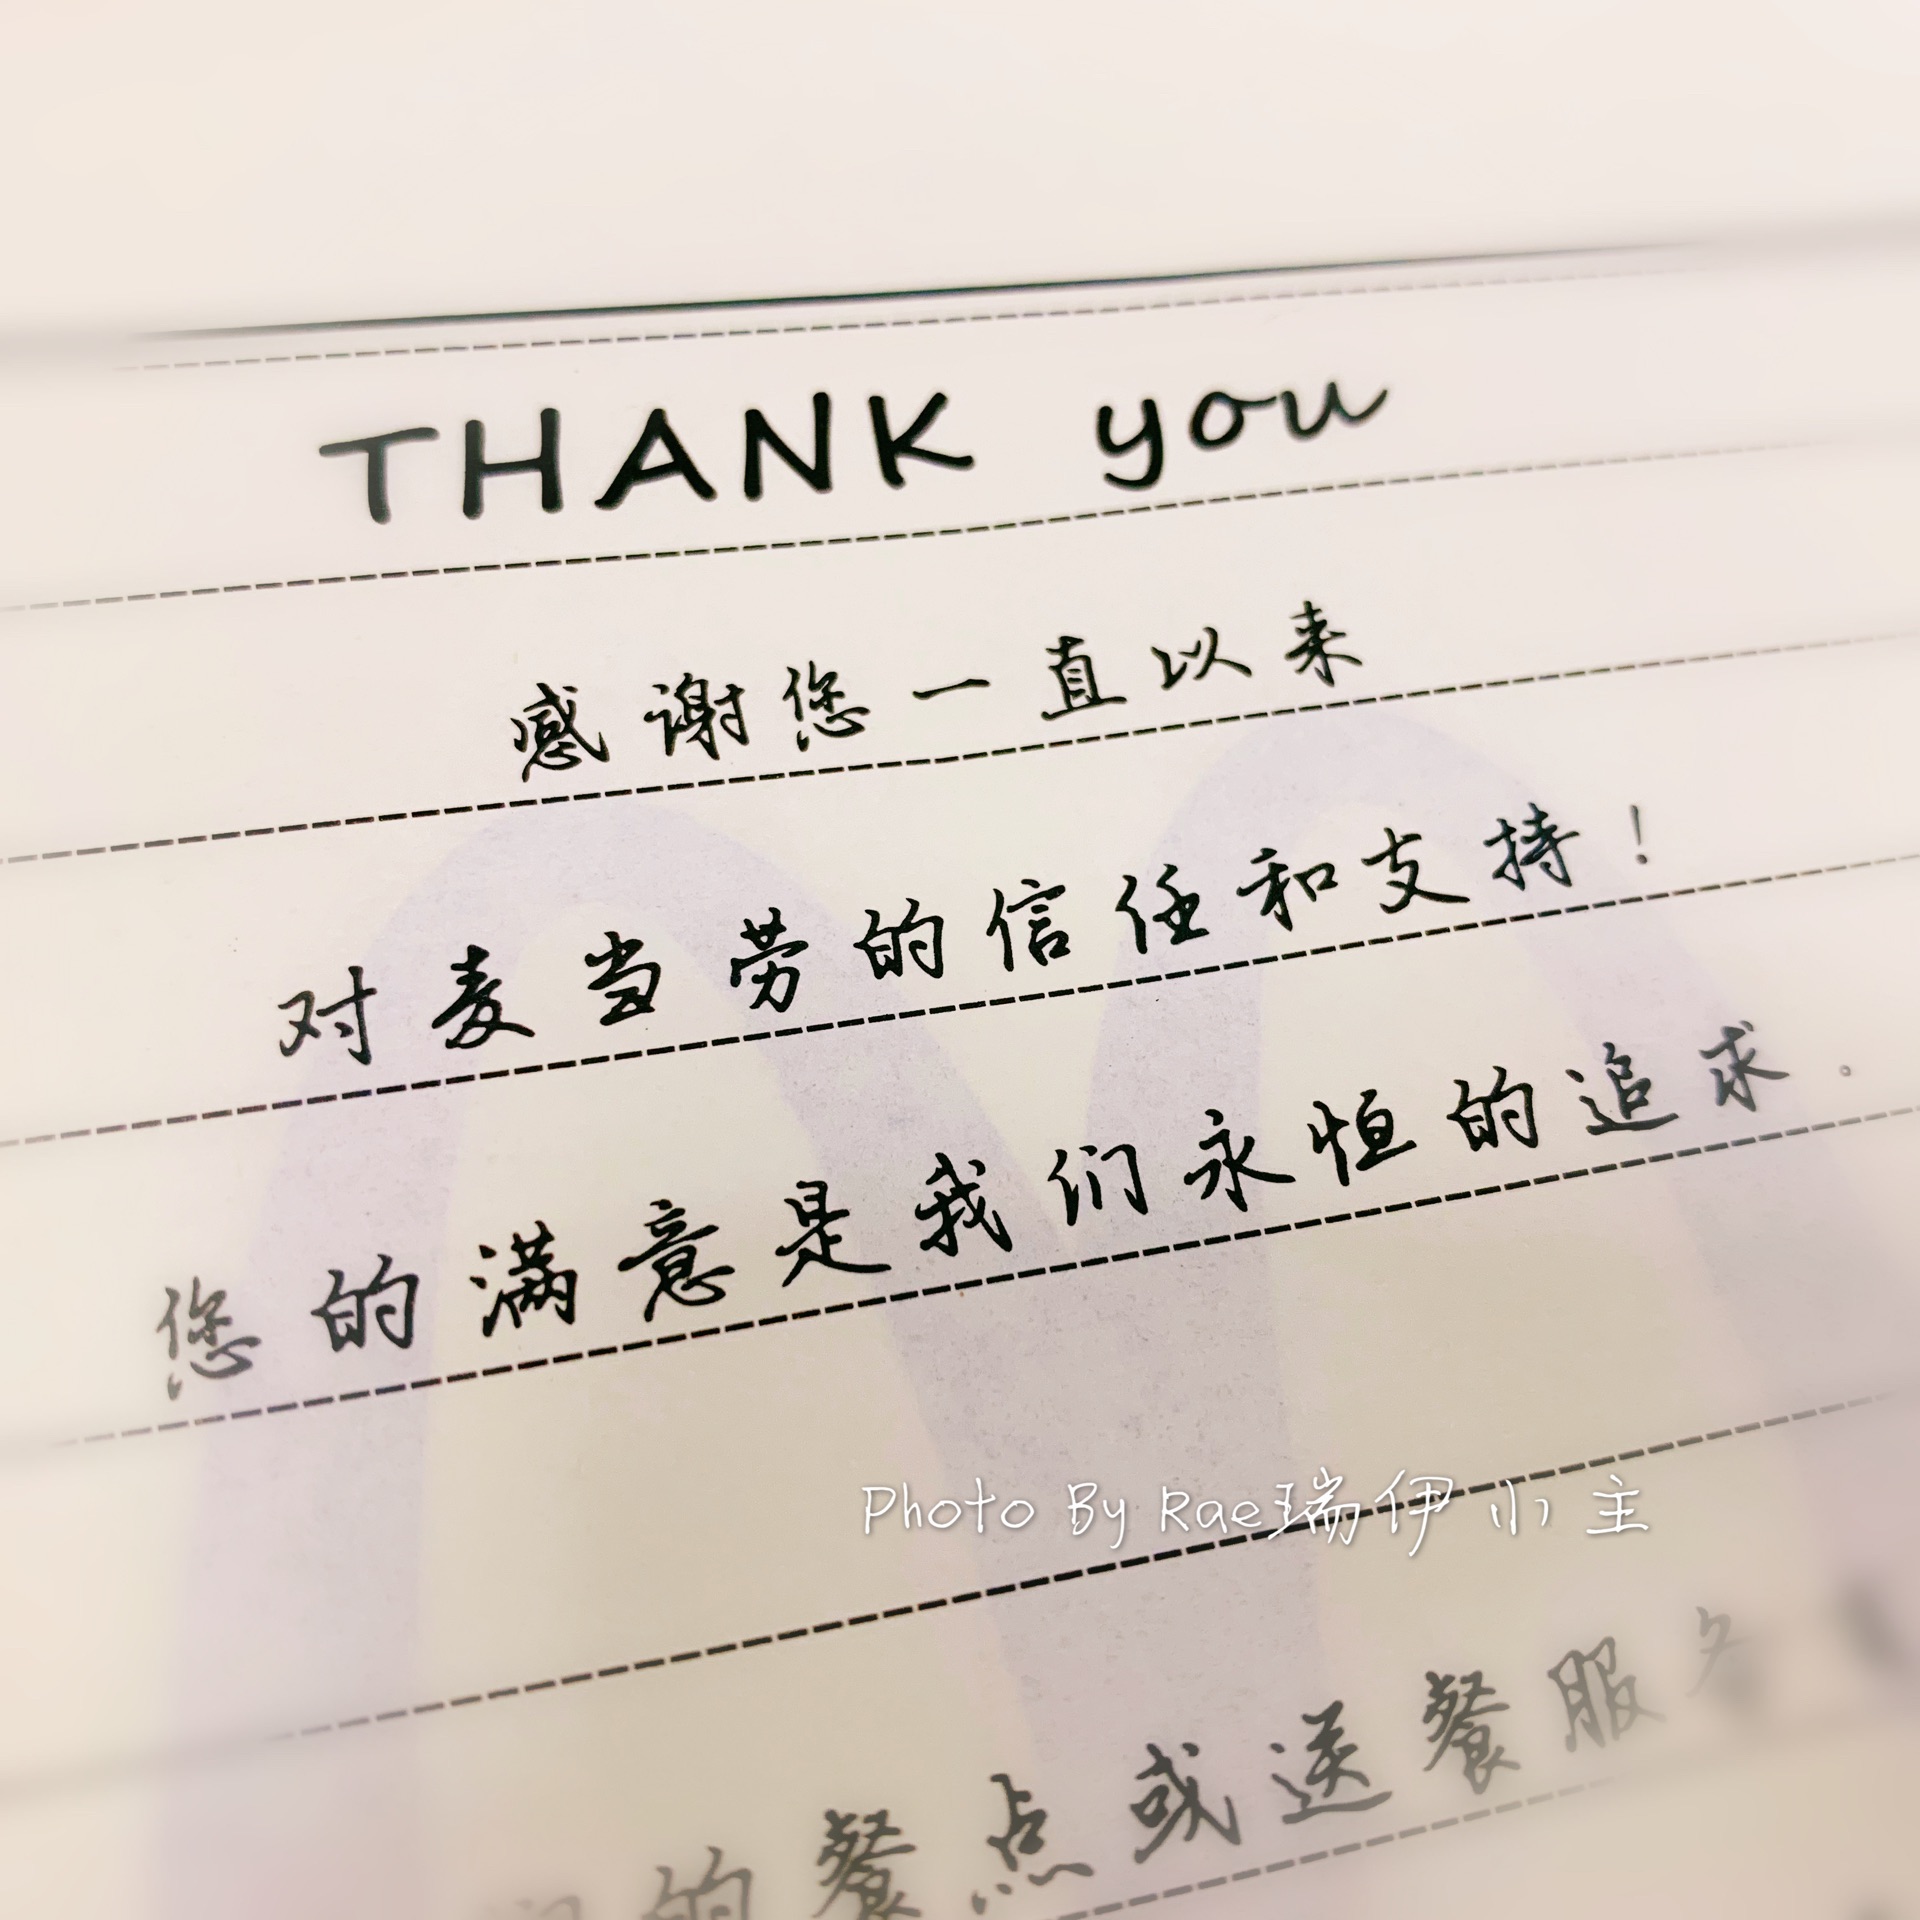 THANK you
感谢您一直以来
对麦当劳的信任和支持！
您的满意是我们永恒的追求。
Photo By Rae瑞伊小主
的餐点或送餐服务